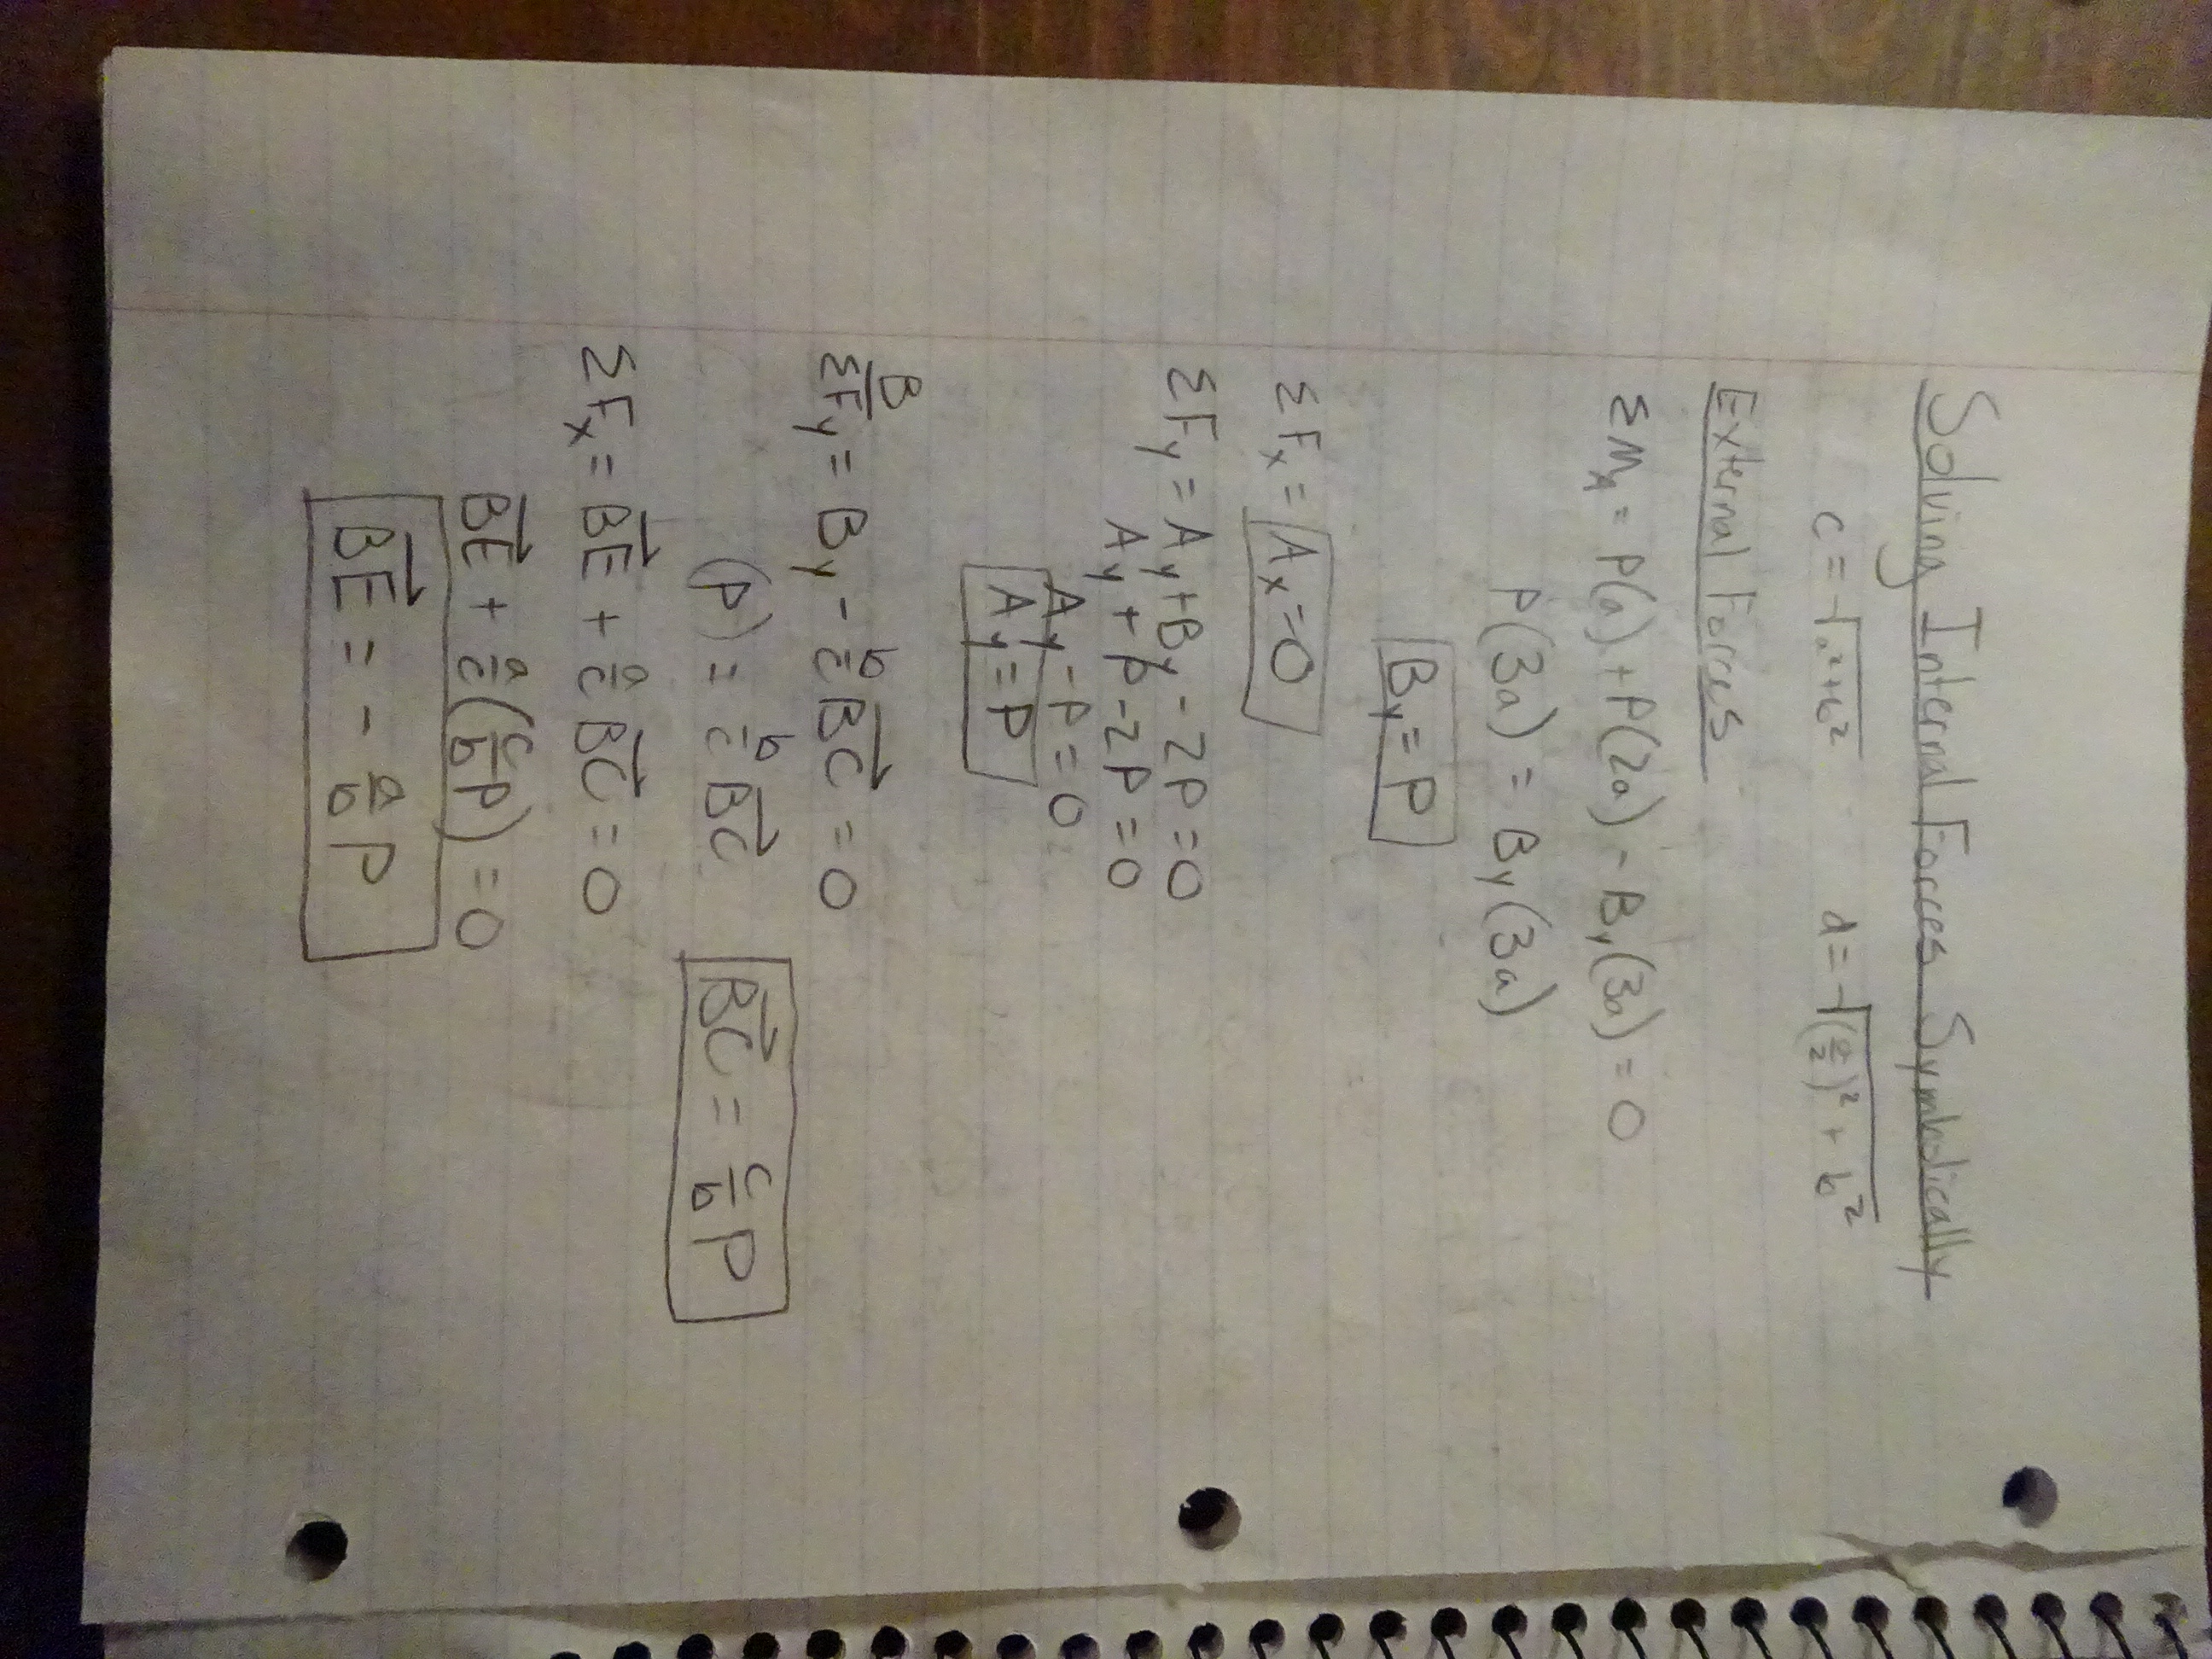 Solving Internal Forces Symbolically
c = √a²+b²   d = √(a/2)² + b²
External Forces
ΣM_A = P(a) + P(2a) - By(3a) = 0
P(3a) = By(3a)
By = P
ΣFx = Ax = 0
ΣFy = Ay + By - 2P = 0
Ay + P - 2P = 0
Ay - P = 0
Ay = P
B
ΣFy = By - b/c BC→ = 0
(P) = b/c BC→   BC→ = c/b P
ΣFx = BE→ + a/c BC→ = 0
BE→ + a/c (c/b P) = 0
BE→ = - a/b P